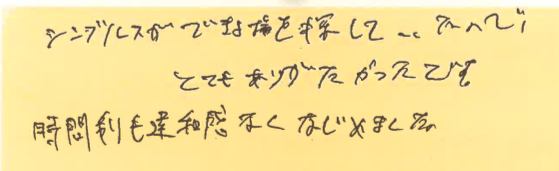 シングルスができる場を探して..たので、
とてもありがたかったです。
時間割も違和感なくなじめました。